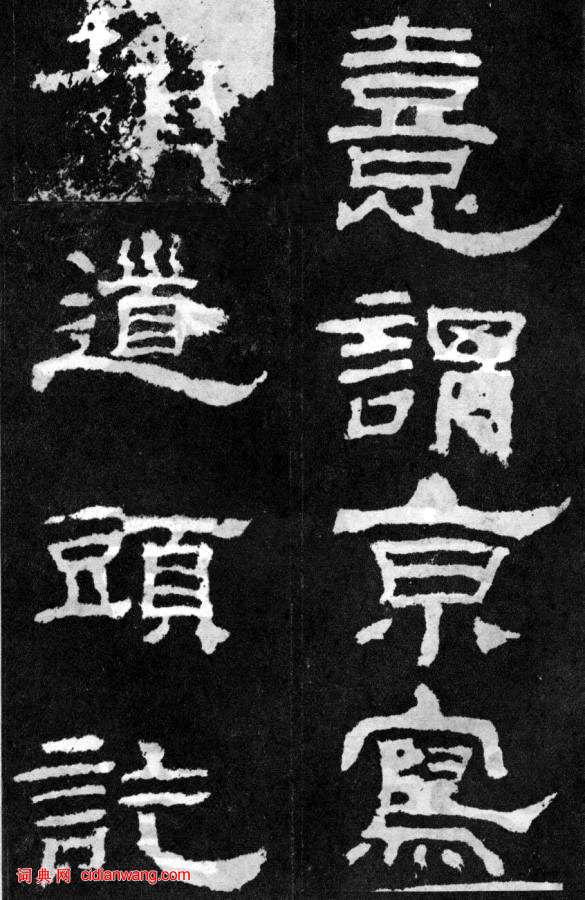 憙謂京寫
道頭訖
词典网 cidianwang.com